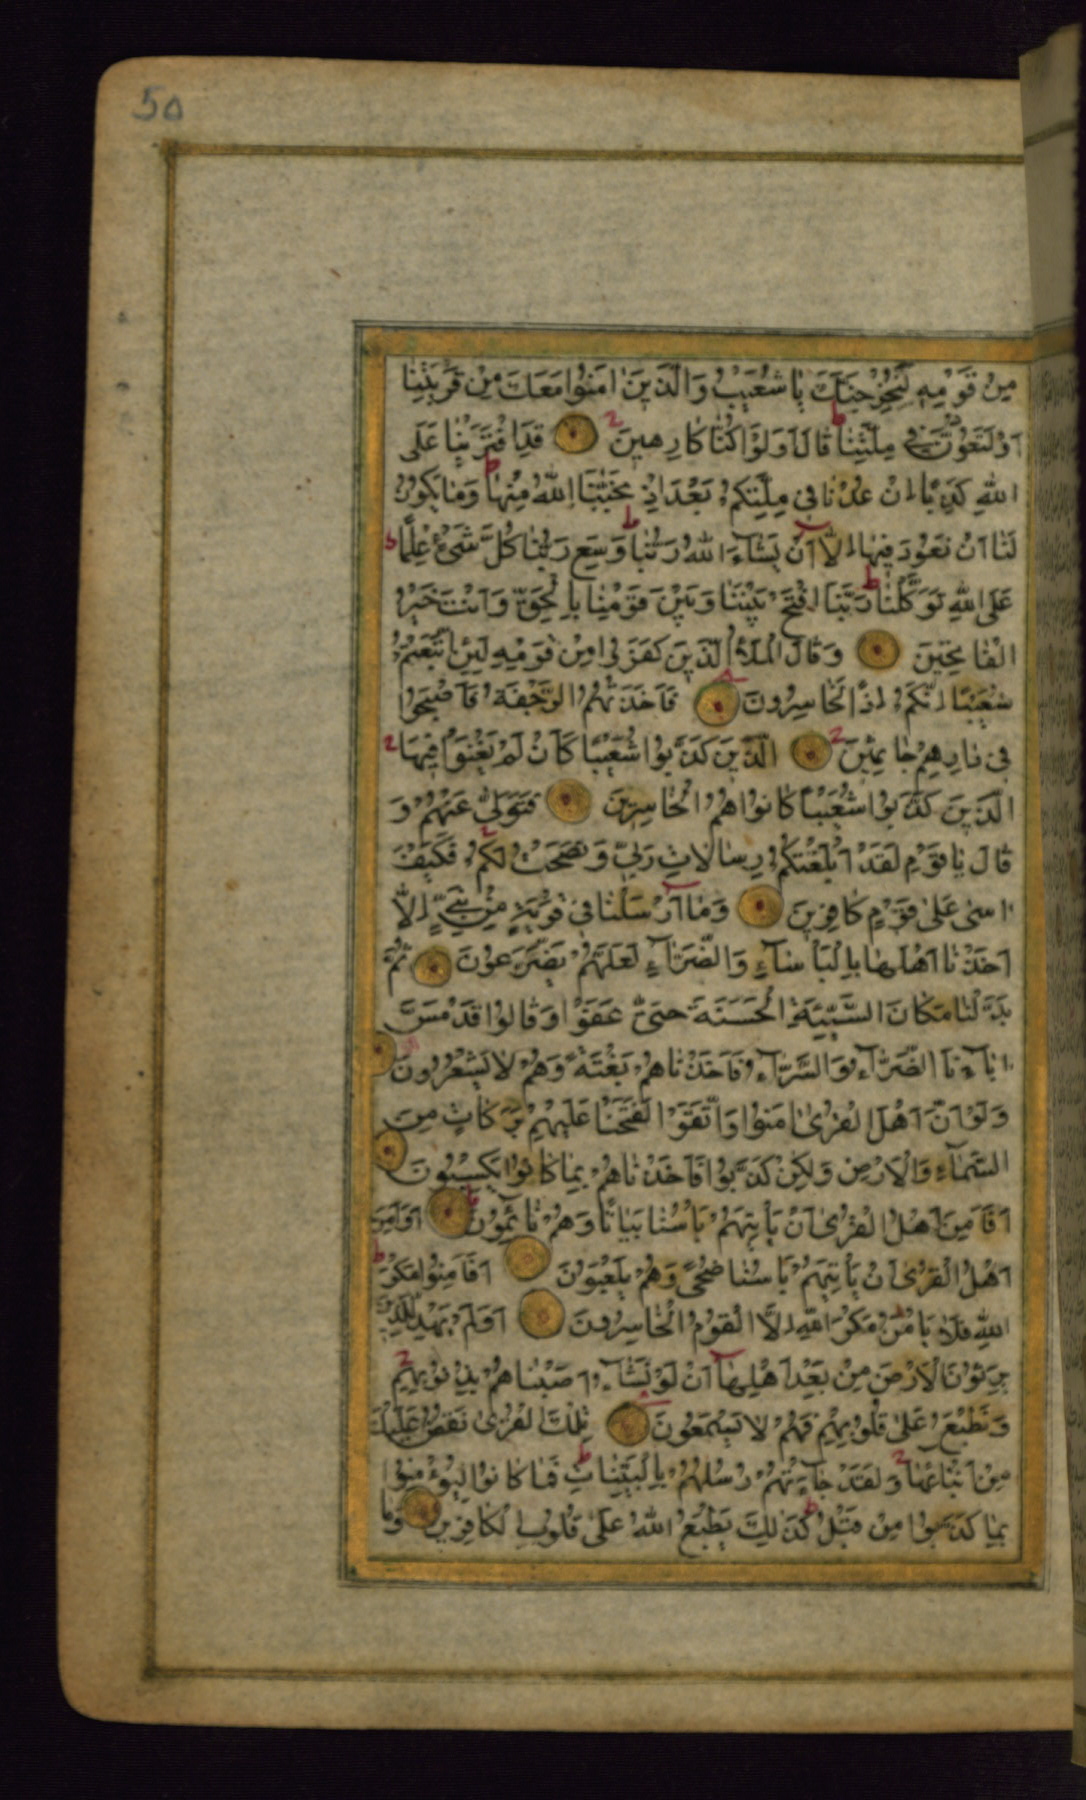 50
مِنْ قَوْمِهِ لَنُخْرِجَنَّكَ يَا شُعَيْبُ وَالَّذِينَ امَنُوا مَعَكَ مِنْ قَرْيَتِنَا
اَوْ لَتَعُودُنَّ فِي مِلَّتِنَا قَالَ اَوَلَوْ كُنَّا كَارِهِينَ قَدِ افْتَرَيْنَا عَلَى
اللهِ كَذِبًا اِنْ عُدْنَا فِي مِلَّتِكُمْ بَعْدَ اِذْ نَجَّيْنَا اللهُ مِنْهَا وَمَا يَكُونُ
لَنَا اَنْ نَعُودَ فِيهَا اِلَّا اَنْ يَشَاءَ اللهُ رَبُّنَا وَسِعَ رَبُّنَا كُلَّ شَيْءٍ عِلْمًا
عَلَى اللهِ تَوَكَّلْنَا رَبَّنَا افْتَحْ بَيْنَنَا وَبَيْنَ قَوْمِنَا بِالْحَقِّ وَاَنْتَ خَيْرُ
الْفَاتِحِينَ وَقَالَ الْمَلَاُ الَّذِينَ كَفَرُوا مِنْ قَوْمِهِ لَئِنِ اتَّبَعْتُمْ
شُعَيْبًا اِنَّكُمْ اِذًا لَخَاسِرُونَ فَاَخَذَتْهُمُ الرَّجْفَةُ فَاَصْبَحُوا
فِي دَارِهِمْ جَاثِمِينَ الَّذِينَ كَذَّبُوا شُعَيْبًا كَاَنْ لَمْ يَغْنَوْا فِيهَا
الَّذِينَ كَذَّبُوا شُعَيْبًا كَانُوا هُمُ الْخَاسِرِينَ فَتَوَلَّى عَنْهُمْ وَ
قَالَ يَا قَوْمِ لَقَدْ اَبْلَغْتُكُمْ رِسَالَاتِ رَبِّي وَنَصَحْتُ لَكُمْ فَكَيْفَ
اسَى عَلَى قَوْمٍ كَافِرِينَ وَمَا اَرْسَلْنَا فِي قَرْيَةٍ مِنْ نَبِيٍّ اِلَّا
اَخَذْنَا اَهْلَهَا بِالْبَاْسَاءِ وَالضَّرَّاءِ لَعَلَّهُمْ يَضَّرَّعُونَ ثُمَّ
بَدَّلْنَا مَكَانَ السَّيِّئَةِ الْحَسَنَةَ حَتَّى عَفَوْا وَقَالُوا قَدْ مَسَّ
ابَاءَنَا الضَّرَّاءُ وَالسَّرَّاءُ فَاَخَذْنَاهُمْ بَغْتَةً وَهُمْ لَا يَشْعُرُونَ
وَلَوْ اَنَّ اَهْلَ الْقُرَى امَنُوا وَاتَّقَوْا لَفَتَحْنَا عَلَيْهِمْ بَرَكَاتٍ مِنَ
السَّمَاءِ وَالْاَرْضِ وَلَكِنْ كَذَّبُوا فَاَخَذْنَاهُمْ بِمَا كَانُوا يَكْسِبُونَ
اَفَاَمِنَ اَهْلُ الْقُرَى اَنْ يَاْتِيَهُمْ بَاْسُنَا بَيَاتًا وَهُمْ نَائِمُونَ اَوَاَمِنَ
اَهْلُ الْقُرَى اَنْ يَاْتِيَهُمْ بَاْسُنَا ضُحًى وَهُمْ يَلْعَبُونَ اَفَاَمِنُوا مَكْرَ
اللهِ فَلَا يَاْمَنُ مَكْرَ اللهِ اِلَّا الْقَوْمُ الْخَاسِرُونَ اَوَلَمْ يَهْدِ لِلَّذِينَ
يَرِثُونَ الْاَرْضَ مِنْ بَعْدِ اَهْلِهَا اَنْ لَوْ نَشَاءُ اَصَبْنَاهُمْ بِذُنُوبِهِمْ
وَنَطْبَعُ عَلَى قُلُوبِهِمْ فَهُمْ لَا يَسْمَعُونَ تِلْكَ الْقُرَى نَقُصُّ عَلَيْكَ
مِنْ اَنْبَائِهَا وَلَقَدْ جَاءَتْهُمْ رُسُلُهُمْ بِالْبَيِّنَاتِ فَمَا كَانُوا لِيُؤْمِنُوا
بِمَا كَذَّبُوا مِنْ قَبْلُ كَذَلِكَ يَطْبَعُ اللهُ عَلَى قُلُوبِ الْكَافِرِينَ وَمَا